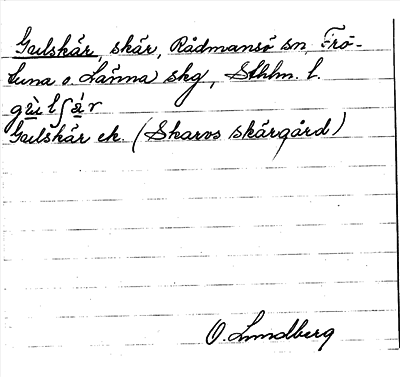 Gulskär, skär, Rådmansö sn, Frö-
tuna o. Länna skg, Sthlm. l.
gùlʃár
Gulskär ek. (Skarvs skärgård)
O. Lundberg